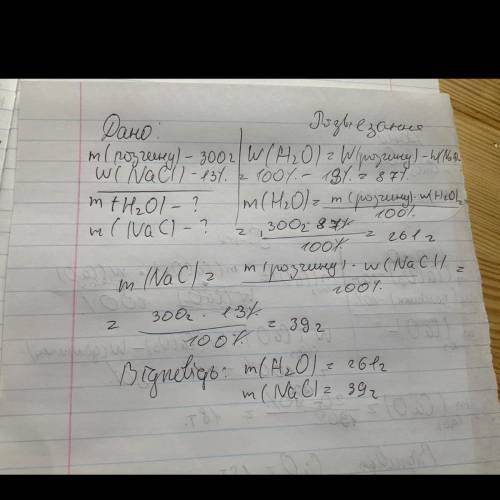 Дано:
Розвьезання
m(розчину) - 300г
W(NaCl) - 13%
m(H₂O) - ?
m(NaCl) - ?
W(H₂O) = W(розчину) - W(NaCl)
= 100% - 13% = 87%
m(H₂O) = m(розчину) · w(H₂O) / 100% =
= 300г · 87% / 100% = 261г
m(NaCl) = m(розчину) · w(NaCl) / 100% =
= 300г · 13% / 100% = 39г
Відповідь: m(H₂O) = 261г
m(NaCl) = 39г